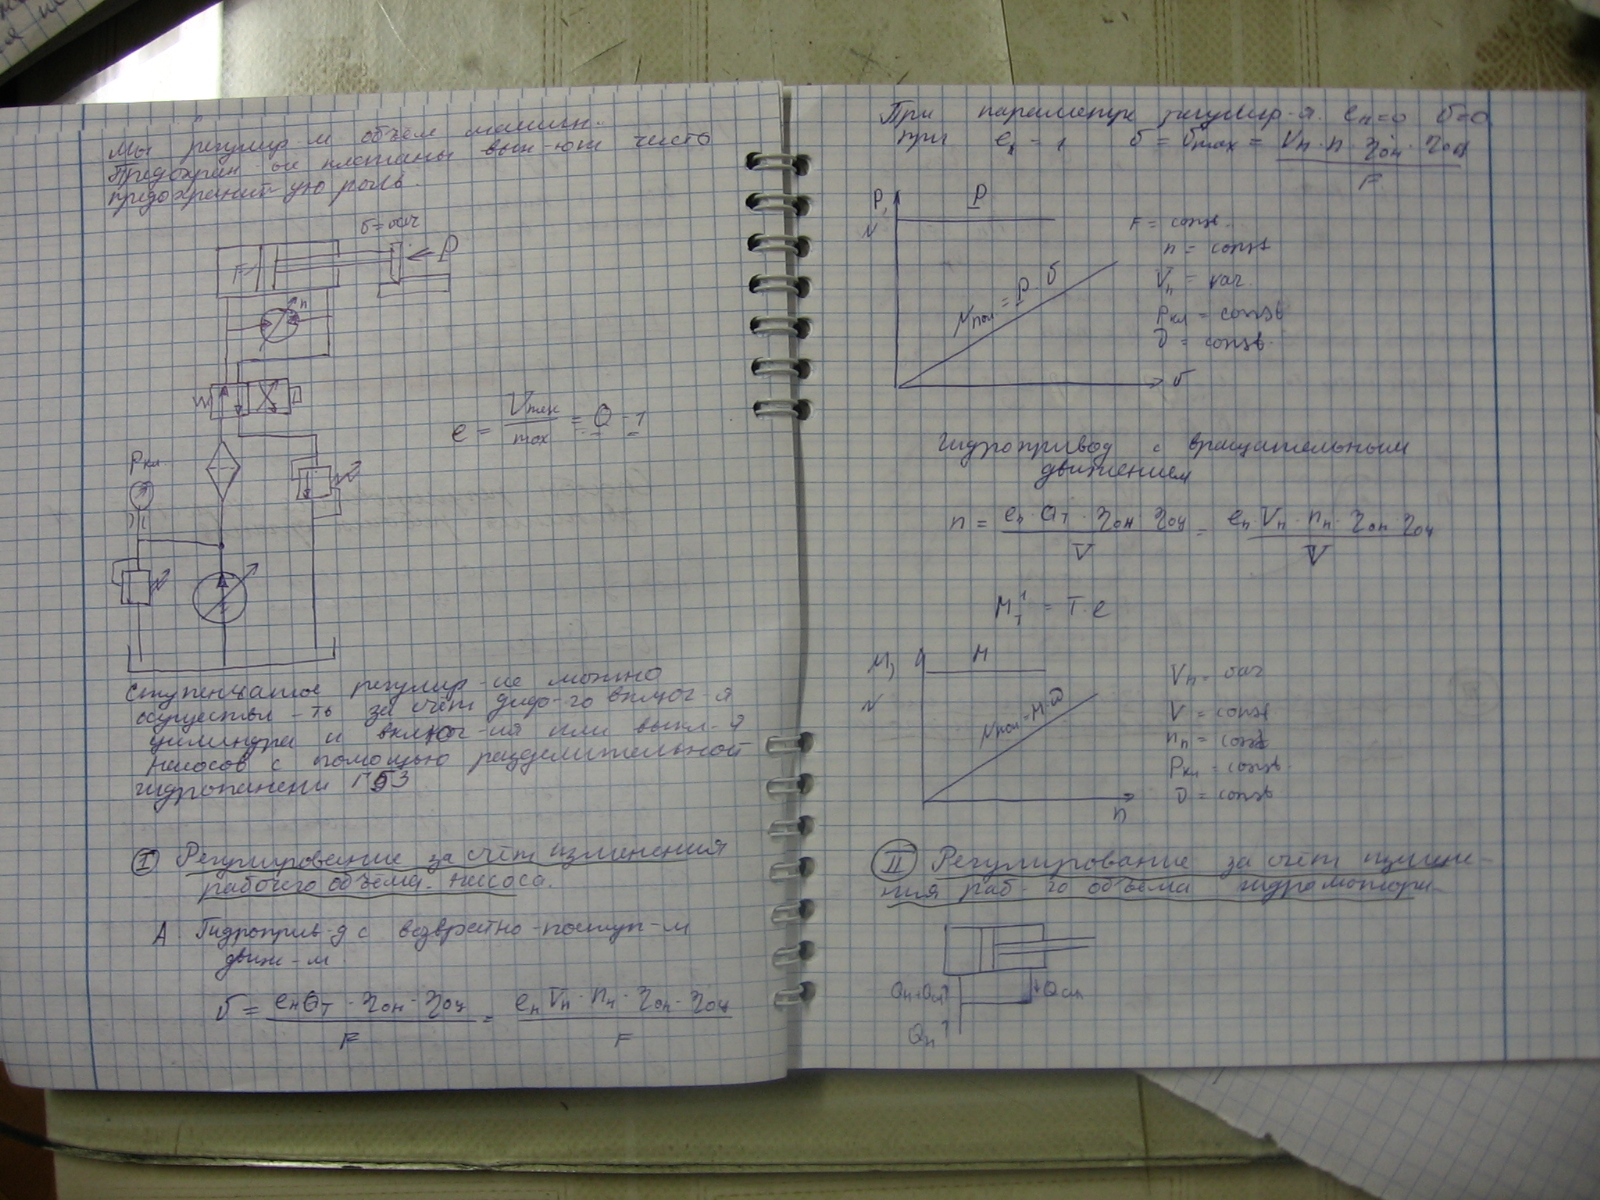 Мы регулир-м объём машин.
Предохран-ые клапаны вып-ют чисто
предохранит-ую роль.
F
P
n
Pкл.
e = Vmin / max = 0 - 1
Ступенчатое регулир-ие можно
осуществл-ть за счёт
цилиндра и включ-ия или выкл-я
насосов с помощью разделительной
гидропанели Г53
I Регулирование за счёт изменения
рабочего объёма насоса.
А Гидроприв-д с возвратно-поступ-м
движ-м
υ = eнQт · ηон · ηоц / F = eн Vн · nн · ηон · ηоц / F
При параметре регулир-я eн=0 υ=0
при e = 1 υ = υmax = Vн · n · ηон · ηоц / F
P,
N
P
Nпол = P · υ
υ
F = const.
n = const
Vн = var.
Pкл = const
= const.
Гидропривод с вращательным
движением
n = eн · Qт · ηон · ηоц / V = eн Vн · nн · ηон · ηоц / V
M,
N
M
Nпол = M · ω
n
Vн = var
V = const
nн = const
Pкл = const.
= const
II Регулирование за счёт измене-
ния раб-го объёма гидромотора
Qсл
Qн